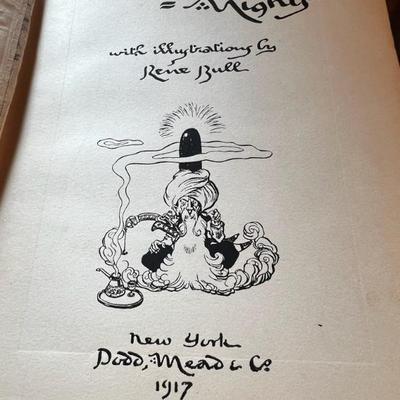 with illustrations by
René Bull
New York
Dodd, Mead & Co
1917